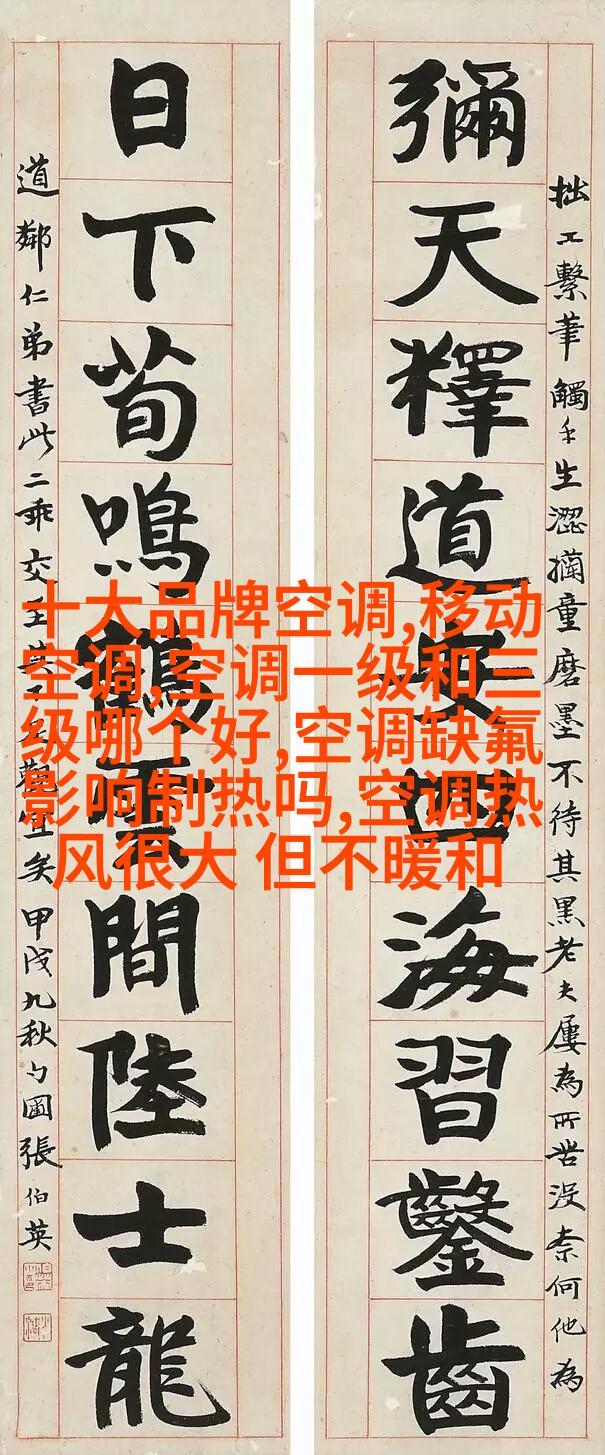 拙工繫筆觸手生澀童磨墨不待其黑老夫屢為所苦沒柰何他為
彌天釋道安四海習鑿齒
日下荀鳴鶴雲間陸士龍
道鄰仁弟書此二乖交至其不足觀宜矣甲戌九秋勺圃張伯英
十大品牌空调,移动
空调,空调一级和三
级哪个好,空调缺氟
影响制热吗,空调热
风很大 但不暖和